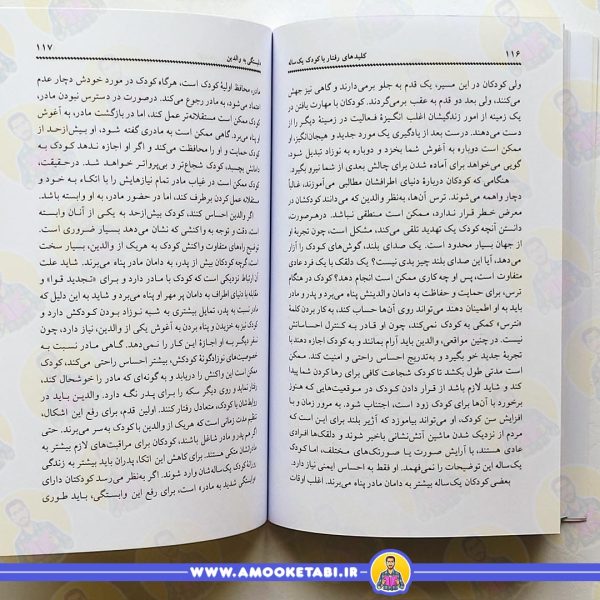 ۱۱۶
کلیدهای رفتار با کودک یک‌ساله
ولی کودکان در این مسیر، یک قدم به جلو برمی‌دارند و گاهی نیز جهش
می‌کنند، ولی بعد دو قدم به عقب برمی‌گردند. کودکان با مهارت یافتن در
یک زمینه از امور زندگیشان اغلب انگیزهٔ فعالیت در زمینهٔ دیگر را از
دست می‌دهند. درست بعد از یادگیری یک مورد جدید و هیجان‌انگیز، او
ممکن است دوباره به آغوش شما بخزد و دوباره به نوزاد تبدیل شود.
گویی می‌خواهد برای آماده شدن برای چالش بعدی از شما نیرو بگیرد.
هنگامی که کودکان دربارهٔ دنیای اطرافشان مطالبی می‌آموزند، غالباً
دچار واهمه می‌شوند. ترس آن‌ها، به‌نظر والدین که می‌دانند کودکشان در
معرض خطر قرار ندارد، ممکن است منطقی نباشد. درهرصورت،
دانستن آنچه کودک یک تهدید تلقی می‌کند، مشکل است، چون تجربهٔ او
از جهان بسیار محدود است. یک صدای بلند، گوش‌های کودک را آزار
می‌دهد، آیا این صدای بلند چیز بدی نیست؟ یک دلقک با یک فرد عادی
متفاوت است، پس او چه کاری ممکن است انجام دهد؟ کودک در هنگام
ترس، برای حمایت و حفاظت به دامان والدینش پناه می‌برد و پدر و مادر
باید به او اطمینان دهند می‌تواند روی آن‌ها حساب کند، به کار بردن کلمهٔ
«نترس» کمکی به کودک نمی‌کند، چون او قادر به کنترل احساساتش
نیست. در چنین مواقعی، والدین باید آرام بمانند و به کودک اجازه دهند با
تجربهٔ جدید خو بگیرد و به‌تدریج احساس راحتی و امنیت کند. ممکن
است مدتی طول بکشد تا کودک شجاعت کافی برای رها کردن شما پیدا
کند و شاید لازم باشد از قرار دادن کودک در موقعیت‌هایی که هنوز
برخورد با آن‌ها برای کودک زود است، اجتناب شود. به مرور زمان و با
افزایش سن کودک، او می‌تواند بیاموزد که آژیر بلند برای این است که
مردم از نزدیک شدن ماشین آتش‌نشانی باخبر شوند و دلقک‌ها افرادی
عادی هستند، با آرایش صورت یا صورتک‌های مختلف، اما کودک
یک‌ساله این توضیحات را نمی‌فهمد. او فقط به احساس ایمنی نیاز دارد.
بعضی کودکان یک‌ساله بیشتر به دامان مادر پناه می‌برند. اغلب اوقات
۱۱۷
وابستگی به والدین
مادر، محافظ اولیهٔ کودک است، هرگاه کودک در مورد خودش دچار عدم
اعتماد می‌شود، به مادر رجوع می‌کند. درصورت در دسترس نبودن مادر،
کودک ممکن است مستقلانه‌تر عمل کند، اما در بازگشت مادر، به آغوش
او پناه می‌برد. گاهی ممکن است به مادری گفته شود، او بیش‌ازحد از
کودک حمایت و او را محافظت می‌کند و اگر او اجازه ندهد کودک به
دامانش بچسبد، کودک شجاع‌تر و بی‌پرواتر خواهد شد. درحقیقت،
کودک ممکن است در غیاب مادر تمام نیازهایش را با اتکاء به خود و
مستقلانه عمل کردن برطرف کند، اما در حضور مادر، به او وابسته باشد.
اگر والدین احساس کنند، کودک بیش‌ازحد به یکی از آنان وابسته
است، دقت و توجه به واکنشی که نشان می‌دهد بسیار ضروری است.
توضیح راه‌های متفاوت واکنش کودک به هریک از والدین، بسیار سخت
است گرچه کودکان بیش از پدر، به مادر پناه می‌برند. شاید علت
آن ارتباط نزدیکی است که کودک با مادر دارد و برای «تجدید قوا» و
مقابله با دنیای اطراف به دامان پر مهر او پناه می‌برد و شاید به این دلیل که
مادر نسبت به پدر، تمایل بیشتری به شبه نوزاد بودن کودکش دارد و
کودک نیز به خزیدن و پناه بردن به آغوش یکی از والدین، نیاز دارد، چون
سفر دیگر به او اجازهٔ این کار را نمی‌دهد. گاهی مادر نسبت به
خصوصیت‌های نوزادگونهٔ کودکش، بیشتر احساس راحتی می‌کند، کودک
ممکن است این واکنش را دریابد و به گونه‌ای که مادر را خوشحال کند،
رفتار نماید و روی دیگر سکه را برای پدر نگه دارد. والدین باید در
روابطشان با کودک، متعادل رفتار کنند. اولین قدم، برای رفع این اشکال،
تنظیم مدت زمانی است که هریک از والدین با کودک به‌سر می‌برند. حتی
اگر هم پدر و مادر شاغل باشند، کودکان برای مراقبت‌های لازم بیشتر به
مادرانشان متکی هستند. برای کاهش این اتکا، پدران باید بیشتر به زندگی
روزانهٔ کودک یک‌ساله‌شان وارد شوند. اگر به‌نظر می‌رسد کودکتان دارای
«وابستگی شدید به مادر» است، برای رفع این وابستگی، باید طوری
WWW.AMOOKETABI.IR